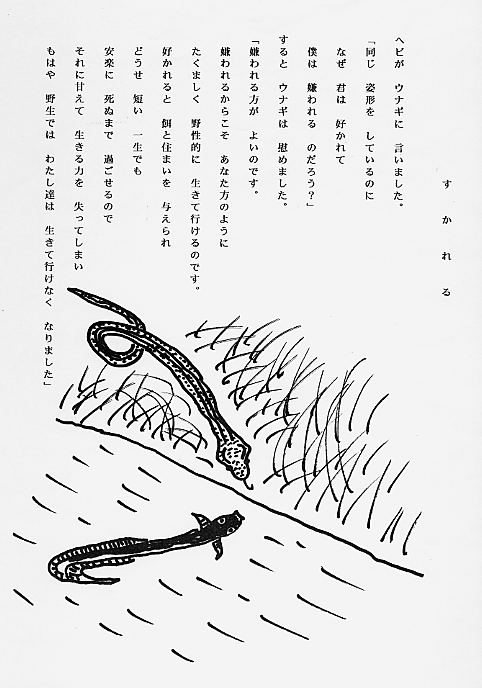 すかれる
ヘビが ウナギに 言いました。
「同じ 姿形を しているのに
なぜ 君は 好かれて
僕は 嫌われる のだろう？」
すると ウナギは 慰めました。
「嫌われる方が よいのです。
嫌われるからこそ あなた方のように
たくましく 野性的に 生きて行けるのです。
好かれると 餌と住まいを 与えられ
どうせ 短い 一生でも
安楽に 死ぬまで 過ごせるので
それに甘えて 生きる力を 失ってしまい
もはや 野生では わたし達は 生きて行けなく なりました」